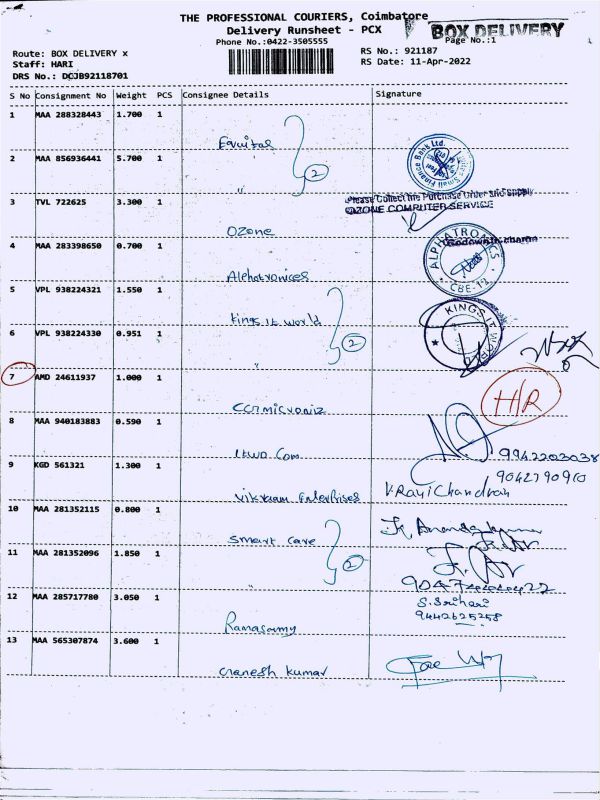 THE PROFESSIONAL COURIERS, Coimbatore
Delivery Runsheet - PCX
BOX DELIVERY
Phone No.:0422-3505555
Page No.:1
Route: BOX DELIVERY x
RS No.: 921187
Staff: HARI
RS Date: 11-Apr-2022
DRS No.: DCJB92118701
S No Consignment No Weight PCS Consignee Details Signature
1 MAA 288328443 1.700 1
Equitas
2 MAA 856936441 5.700 1
2
"
Small Finance Bank Ltd.
3 TVL 722625 3.300 1
Please Collect the Purchase Order and supply
OZONE COMPUTER SERVICE
Ozone
4 MAA 283398650 0.700 1
Godown In charge
ALPHATRONICS
CBE-12
Alphatronices
5 VPL 938224321 1.550 1
Kings it world
KINGS IT WORLD
6 VPL 938224330 0.951 1
2
"
7 AMD 24611937 1.000 1
H/R
8 MAA 940183883 0.590 1
Itwo Com
9942203038
9 KGD 561321 1.300 1
9042790910
Vikram Enterprises
V.Ravichandran
10 MAA 281352115 0.800 1
Smart Care
11 MAA 281352096 1.850 1
2
"
12 MAA 285717780 3.050 1
S.Srihari
9442625258
Ramasamy
13 MAA 565307874 3.600 1
Ganesh kumar